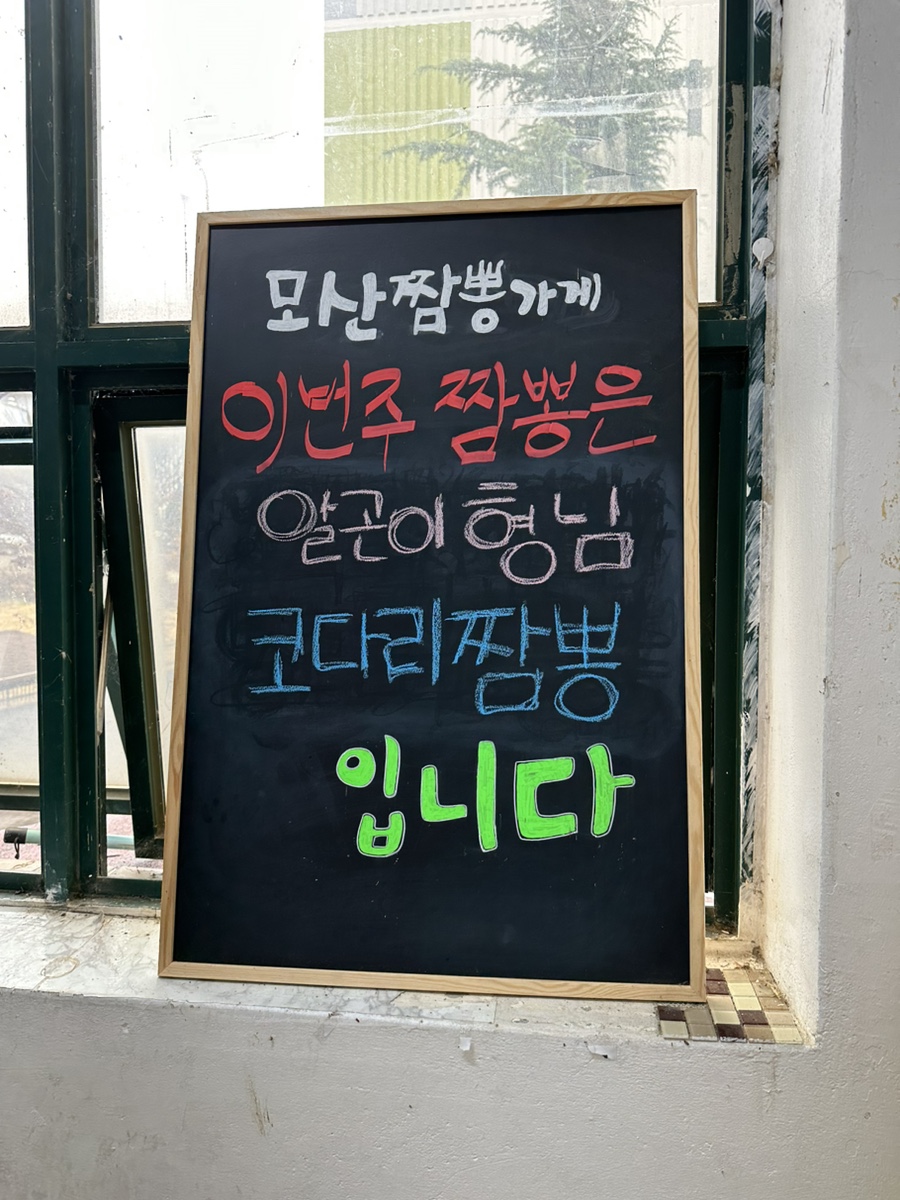 모산짬뽕가게
이번주 짬뽕은
알곤이 형님
코다리짬뽕
입니다